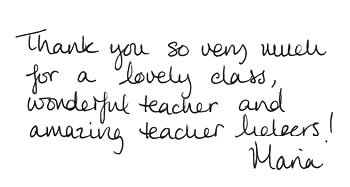 Thank you so very much
for a lovely class,
wonderful teacher and
amazing teacher helpers!
Maria